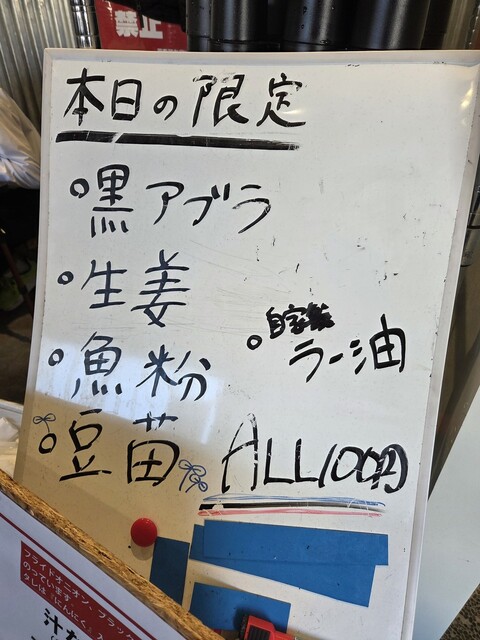 禁止
本日の限定
○黒アブラ
○生姜
○魚粉
○豆苗
○自家製
ラー油
ALL100円
フライドオニオン、ブラック
のっています
タレは「にんにく」入
汁な